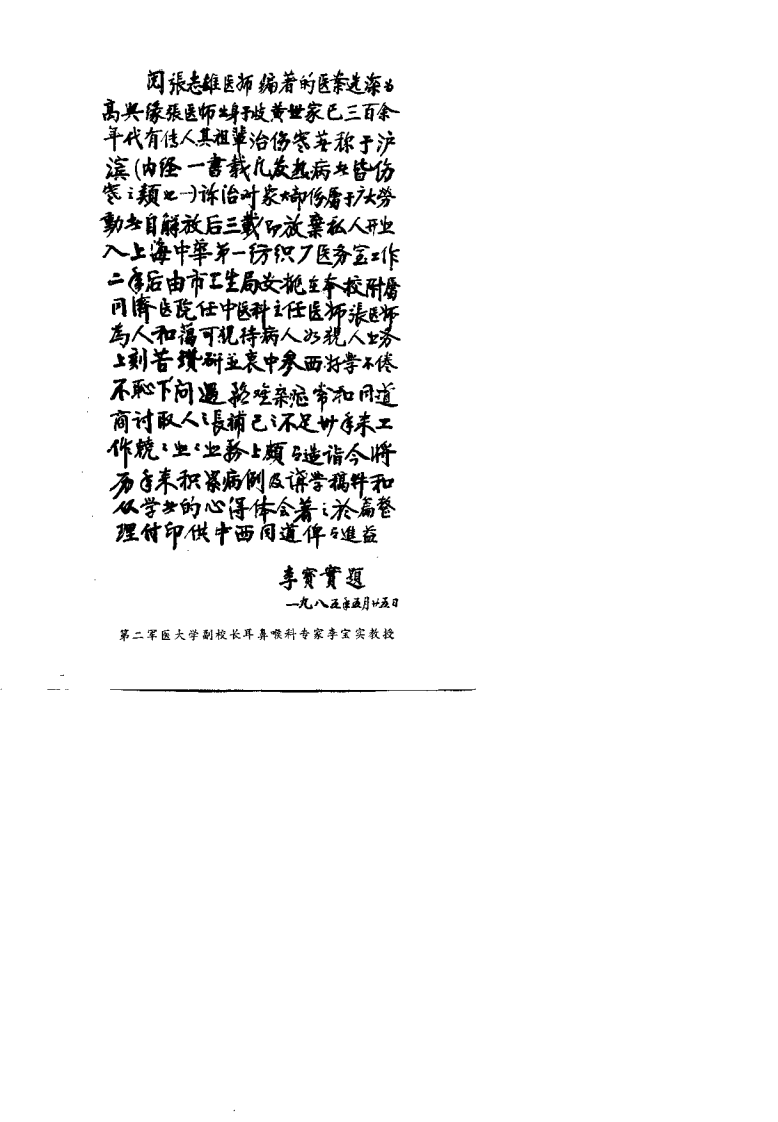 阅張志雄医师編著的医案选深为
高興缘張医师出身于岐黄世家已三百余
年代有传人其祖輩治伤寒著称于沪
滨(内经一書載凡发热病者皆伤
寒之類也一)诊治对象大部份屬于广大勞
動者自解放后三載即放棄私人开业
入上海中華第一纺织厂医务室工作
二年后由市卫生局安排在本校附屬
同濟医院任中医科主任医师張医师
為人和藹可親待病人如親人业务
上刻苦鑽研並衷中参西好学不倦
不恥下问遇疑难杂症常和同道
商讨取人之長補己之不足廿年来工
作兢兢业业业務上頗有造诣今將
历年来积累病例及講学稿件和
从学者的心得体会著之於篇整
理付印供中西同道俾有進益
李寳實題
一九八五年五月廿五日
第二军医大学副校长耳鼻喉科专家李宝实教授